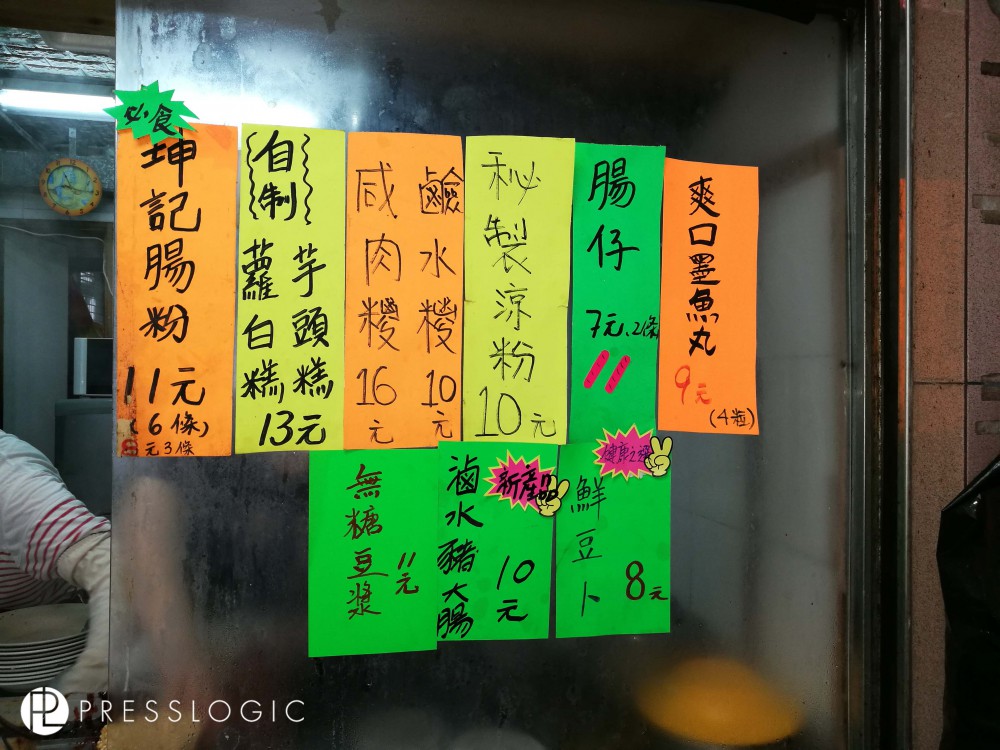 必食
坤記腸粉
11元
(6條)
元3條
自制
蘿白糕
芋頭糕
13元
咸肉糉
16元
鹼水糉
10元
秘製涼粉
10元
腸仔
7元.2條
爽口墨魚丸
9元
(4粒)
無糖豆漿
11元
滷水豬大腸
10元
新產品
鮮豆卜
8元
健康之選
PL PRESSLOGIC